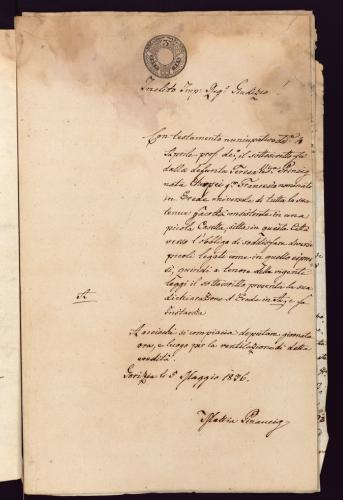 Inclito Imp. Reg. Giudizio
Con testamento nuncupativo
Aprile prof. dei, il sottoscritto fu
dalla defunta Teresa
nata Francesco nominato
in Erede universale di tutta la sua
tenue facoltà consistente in una
picola Casetta, sitta in questa Città
verso l'obbligo di soddisfare diversi
picoli legati come in quello espres
si, quindi a tenore delle vigenti
leggi il sottoscritto presenta la sua
dichiarazione d'Erede in e fa
Instanza
A
Acciochè si compiacia deputare giornata
ora, e luogo per la ventilazione di detta
eredità.
Gorizia le 5 Maggio 1836.
Mattia